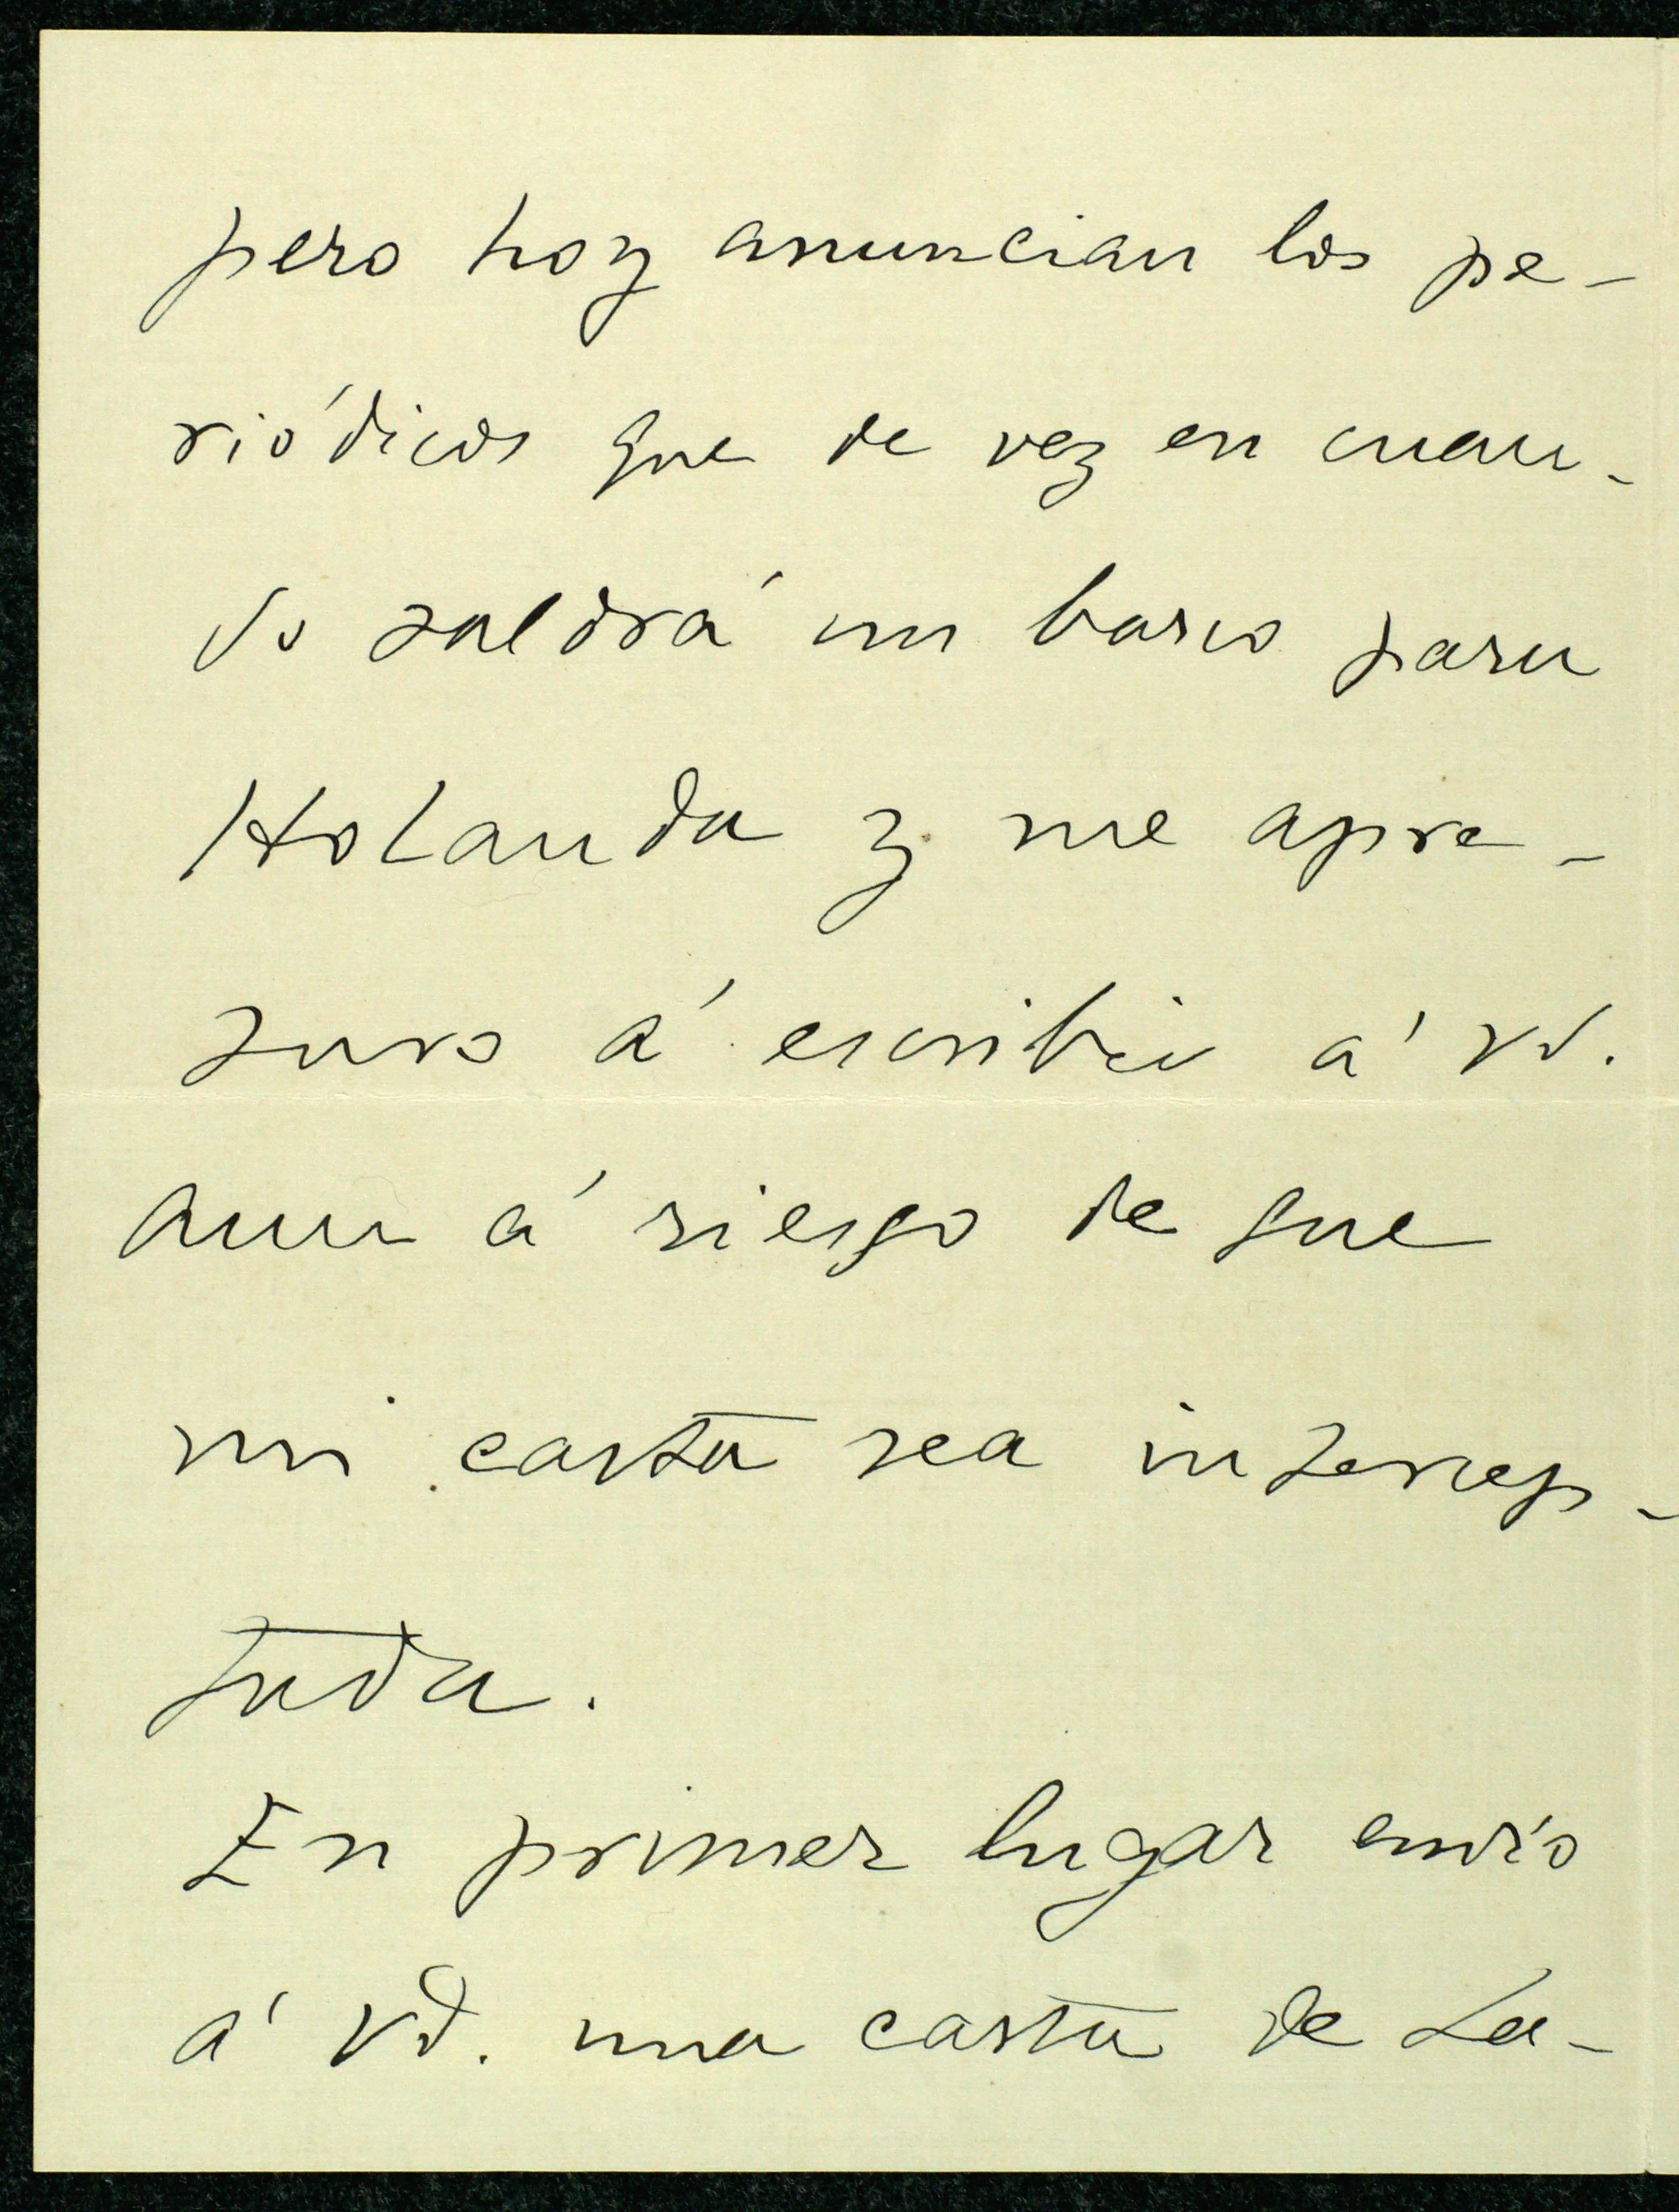 pero hoy anuncian los pe-
riódicos que de vez en cuan-
do saldrá un barco para
Holanda y me apre-
suro á escribir á vd.
aun á riesgo de que
mi carta sea intercep-
tada.
En primer lugar envío
á vd. una carta de La-